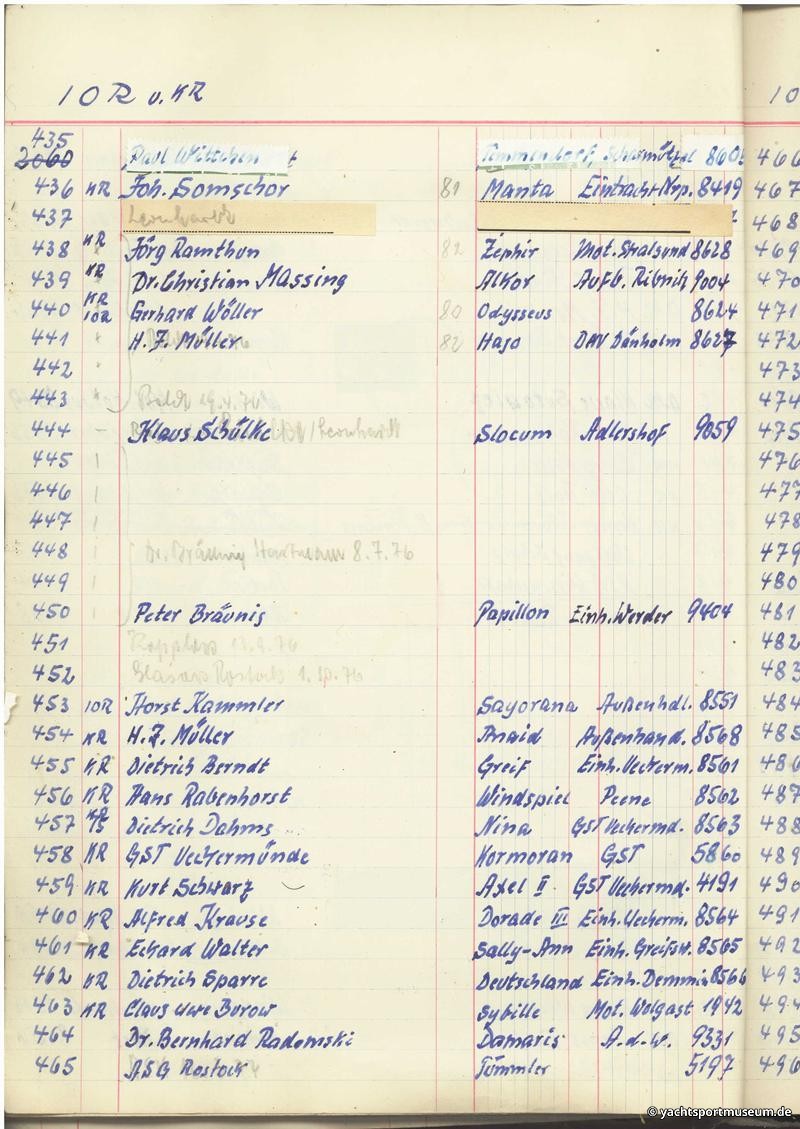 IOR u. KR
10
435
2060 Paul 860 466
436 KR Joh. Somschor 81 Manta Eintracht 8419 467
437 Leonhardt 468
438 KR Jörg Ramthun 82 Zephir Mot. Stralsund 8628 469
439 KR Dr. Christian Massing Alkor Aufb. Ribnitz 9004 470
440 KR IOR Gerhard Wöller 80 Odysseus 8624 471
441 H. J. Müller 82 Hajo DAV Dänholm 8627 472
442 473
443 19.4.76 474
444 – Klaus Schülke /Leonhardt Slocum Adlershof 9059 475
445 476
446 477
447 478
448 Dr. Bräunig Hartmann 8.7.76 479
449 480
450 Peter Bräunig Papillon Einh. Werder 9404 481
451 13.9.76 482
452 Rostock 1.10.76 483
453 IOR Horst Kammler Sayonara Außenhdl. 8551 484
454 KR H. J. Müller Außenhand. 8568 485
455 KR Dietrich Berndt Greif Einh. Ueckerm. 8561 486
456 KR Hans Rabenhorst Windspiel Peene 8562 487
457 KR Dietrich Dahms Nina GST Ueckermd. 8563 488
458 KR GST Ueckermünde Kormoran GST 5860 489
459 KR Kurt Schwarz Axel II GST Ueckermd. 4191 490
460 KR Alfred Krause Dorade III Einh. Ueckerm. 8564 491
461 KR Eckard Walter Sally-Ann Einh. Greifsw. 8565 492
462 KR Dietrich Sparre Deutschland Einh. Demmin 8566 493
463 KR Claus Uwe Burow Sybille Mot. Wolgast 1942 494
464 Dr. Bernhard Radomski Damaris A.d.W. 9331 495
465 ASG Rostock Tümmler 5197 496
© yachtsportmuseum.de